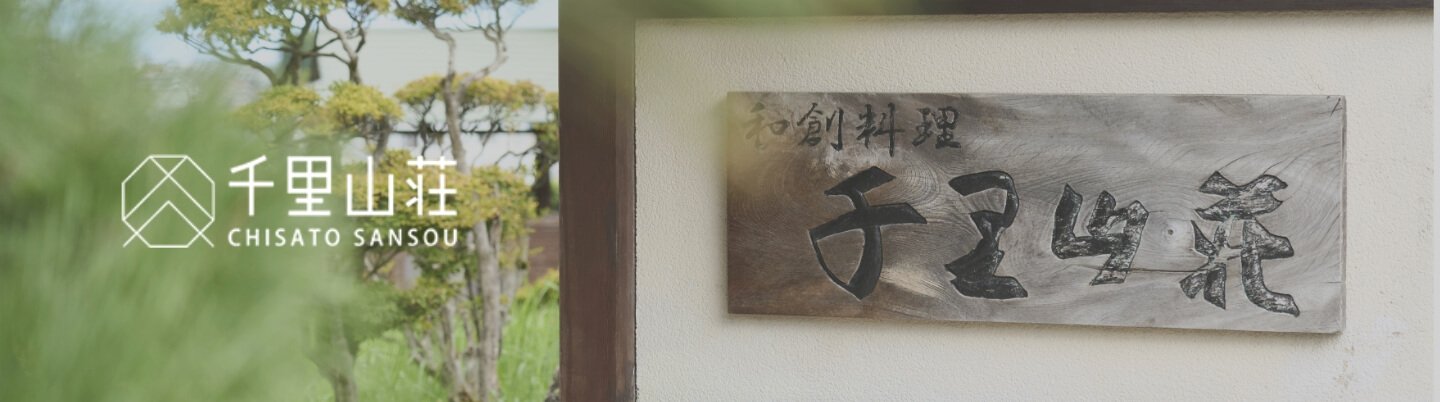 千里山荘
CHISATO SANSOU
和創料理
千里山荘